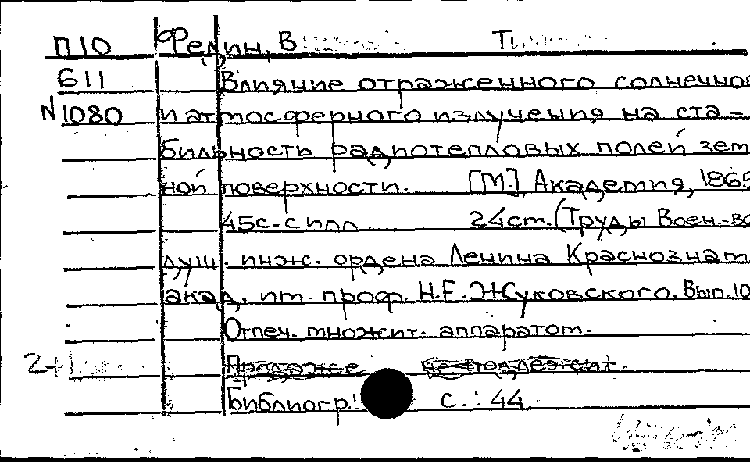 П10 Федин, В
Б11 Влияние отраженного солнечно
N1080 и атмосферного излучения на ста-
бильность радиотепловых полей зем
ной поверхности. [М.], Академия, 1965
45с. с илл 24см. (Труды Воен.-во
душ. инж. ордена Ленина Краснознам
акад. им. проф. Н.Е. Жуковского. Вып. 10
Отпеч. множит. аппаратом.
Продаже не подлежит.
Библиогр.: с.: 44